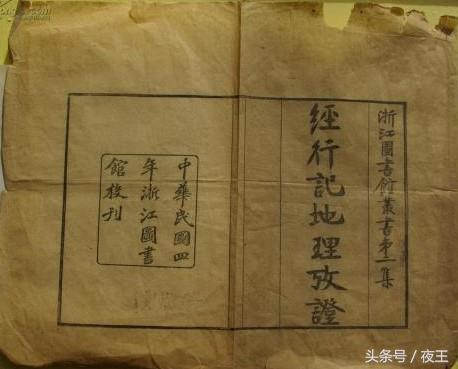 浙江圖書館叢書第一集
經行記地理攷證
中華民國四
年浙江圖書
館校刊
头条号／夜王